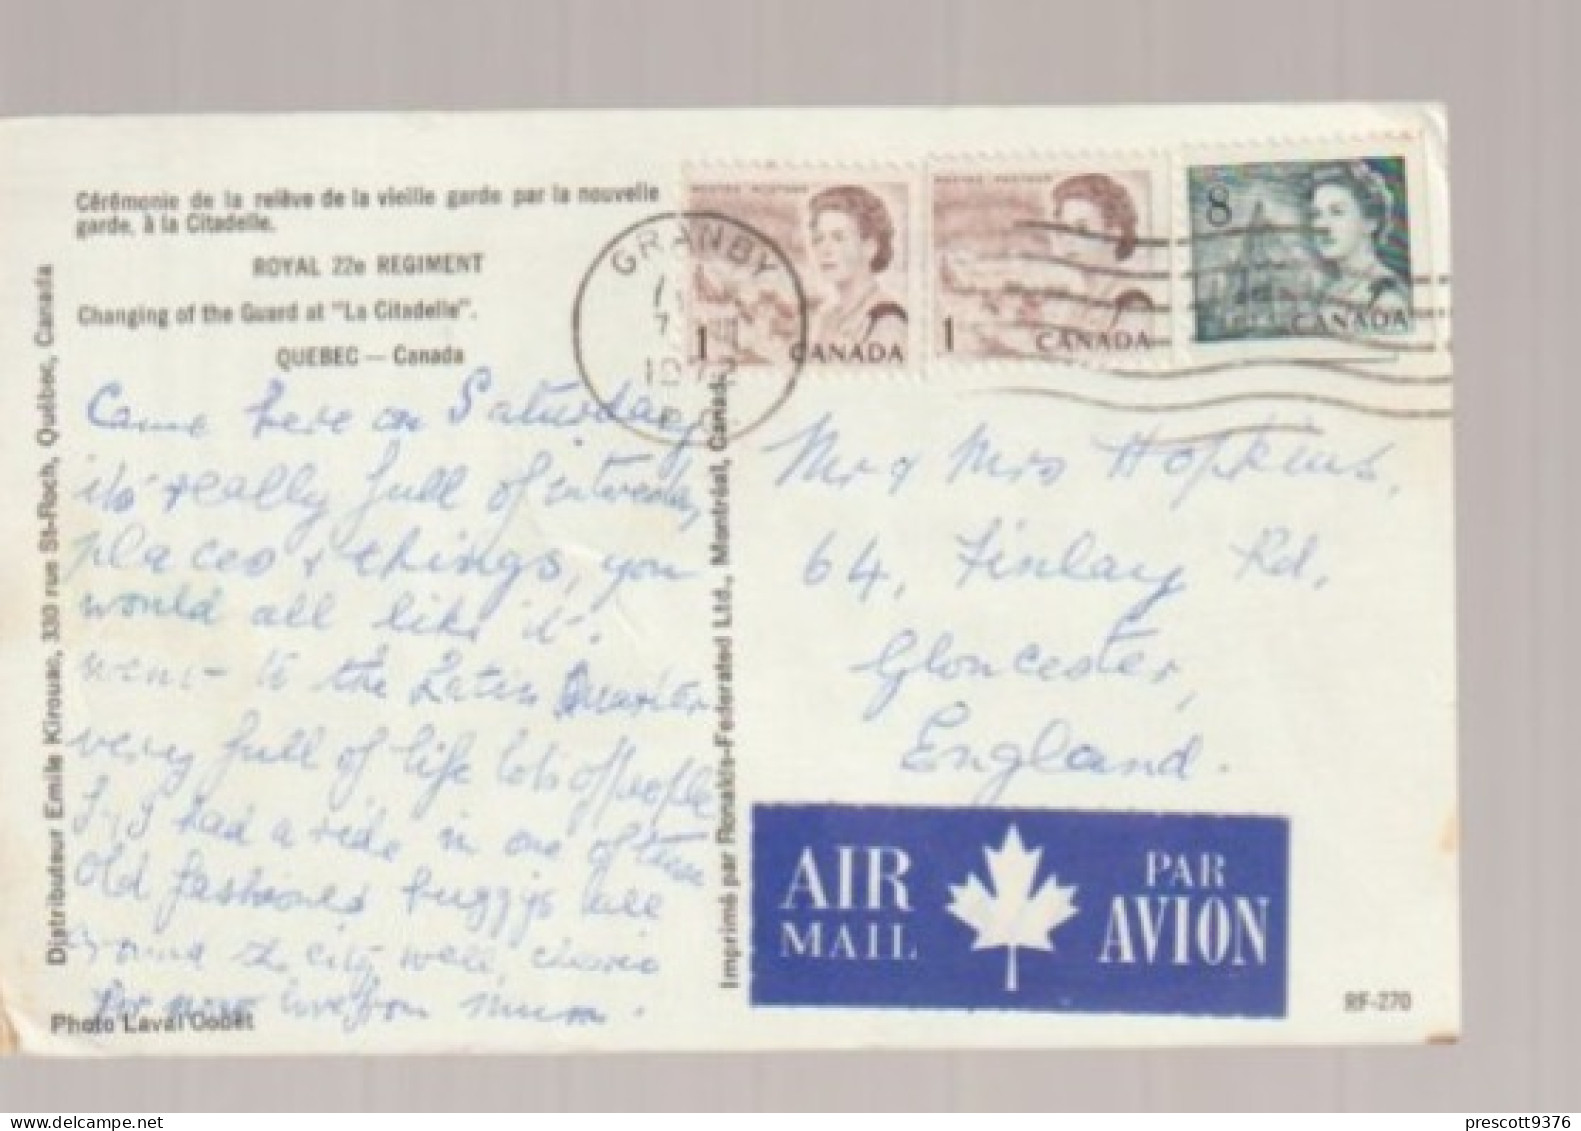 Cérémonie de la relève de la vieille garde par la nouvelle
garde, à la Citadelle.
ROYAL 22e REGIMENT
Changing of the Guard at "La Citadelle".
QUEBEC — Canada
Came here on Saturday
its really full of
places & things, you
would all like it.
went to the Latin Quarter
very full of life lots of people
had a ride in one of these
old fashioned buggys all
around the city well, cheerio
for now love from Mum.
Photo Laval Couët
Distributeur Emile Kirouac, 330 rue St-Roch, Québec, Canada
Imprimé par Ronalds-Federated Ltd., Montréal, Canada
GRANBY
POSTES POSTAGE
1
CANADA
POSTES POSTAGE
1
CANADA
8
CANADA
Mr & Mrs Hopkins,
64, Finlay Rd,
Gloucester,
England.
AIR
MAIL
PAR
AVION
RF-270
prescott9376